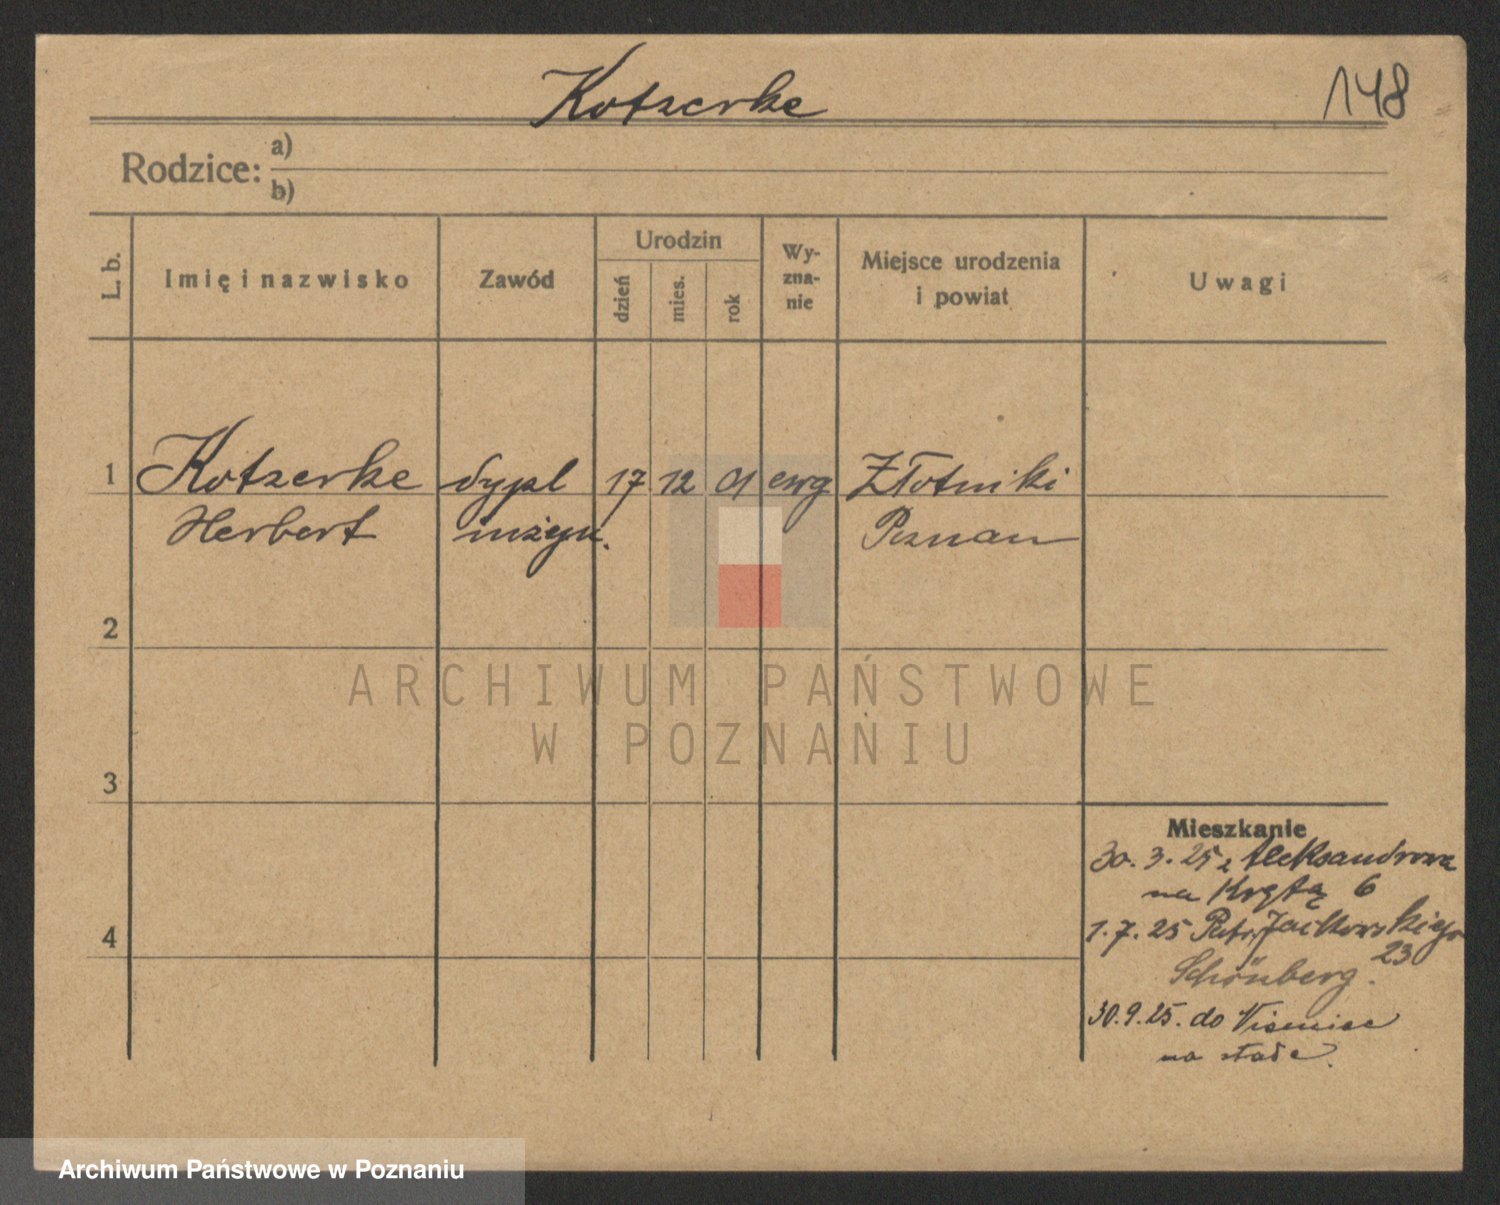 Kotzerke
148
Rodzice: a)
b)
L. b.
Imię i nazwisko
Zawód
Urodzin
dzień
mies.
rok
Wy-
zna-
nie
Miejsce urodzenia
i powiat
Uwagi
1 Kotzerke dypl 17 12 01 ewg Złotniki
Herbert inżyn. Poznan
2
3
4
Mieszkanie
30. 3. 25 z Aleksandrowa
na Krętą 6
1. 7. 25 Patr. Jackowskiego
23
Schönberg.
30. 9. 25. do Niemiec
na stałe.
ARCHIWUM PAŃSTWOWE
W POZNANIU
Archiwum Państwowe w Poznaniu